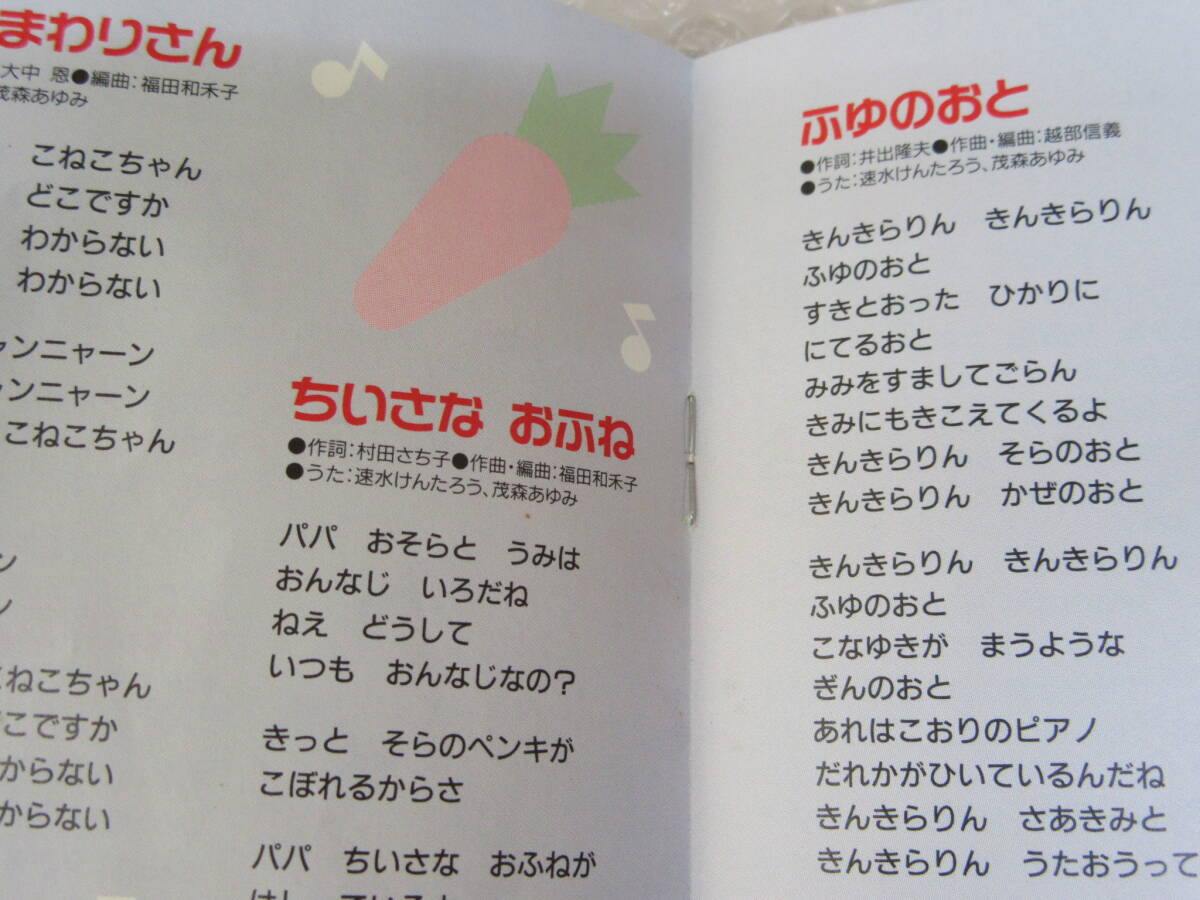 まわりさん
大中 恩●編曲:福田和禾子
茂森あゆみ
こねこちゃん
どこですか
わからない
わからない
ャンニャーン
ャンニャーン
こねこちゃん
ン
ン
こねこちゃん
どこですか
からない
からない
ちいさな おふね
●作詞:村田さち子●作曲・編曲:福田和禾子
●うた:速水けんたろう、茂森あゆみ
パパ おそらと うみは
おんなじ いろだね
ねえ どうして
いつも おんなじなの?
きっと そらのペンキが
こぼれるからさ
パパ ちいさな おふねが
ふゆのおと
●作詞:井出隆夫●作曲・編曲:越部信義
●うた:速水けんたろう、茂森あゆみ
きんきらりん きんきらりん
ふゆのおと
すきとおった ひかりに
にてるおと
みみをすましてごらん
きみにもきこえてくるよ
きんきらりん そらのおと
きんきらりん かぜのおと
きんきらりん きんきらりん
ふゆのおと
こなゆきが まうような
ぎんのおと
あれはこおりのピアノ
だれかがひいているんだね
きんきらりん さあきみと
きんきらりん うたおうって